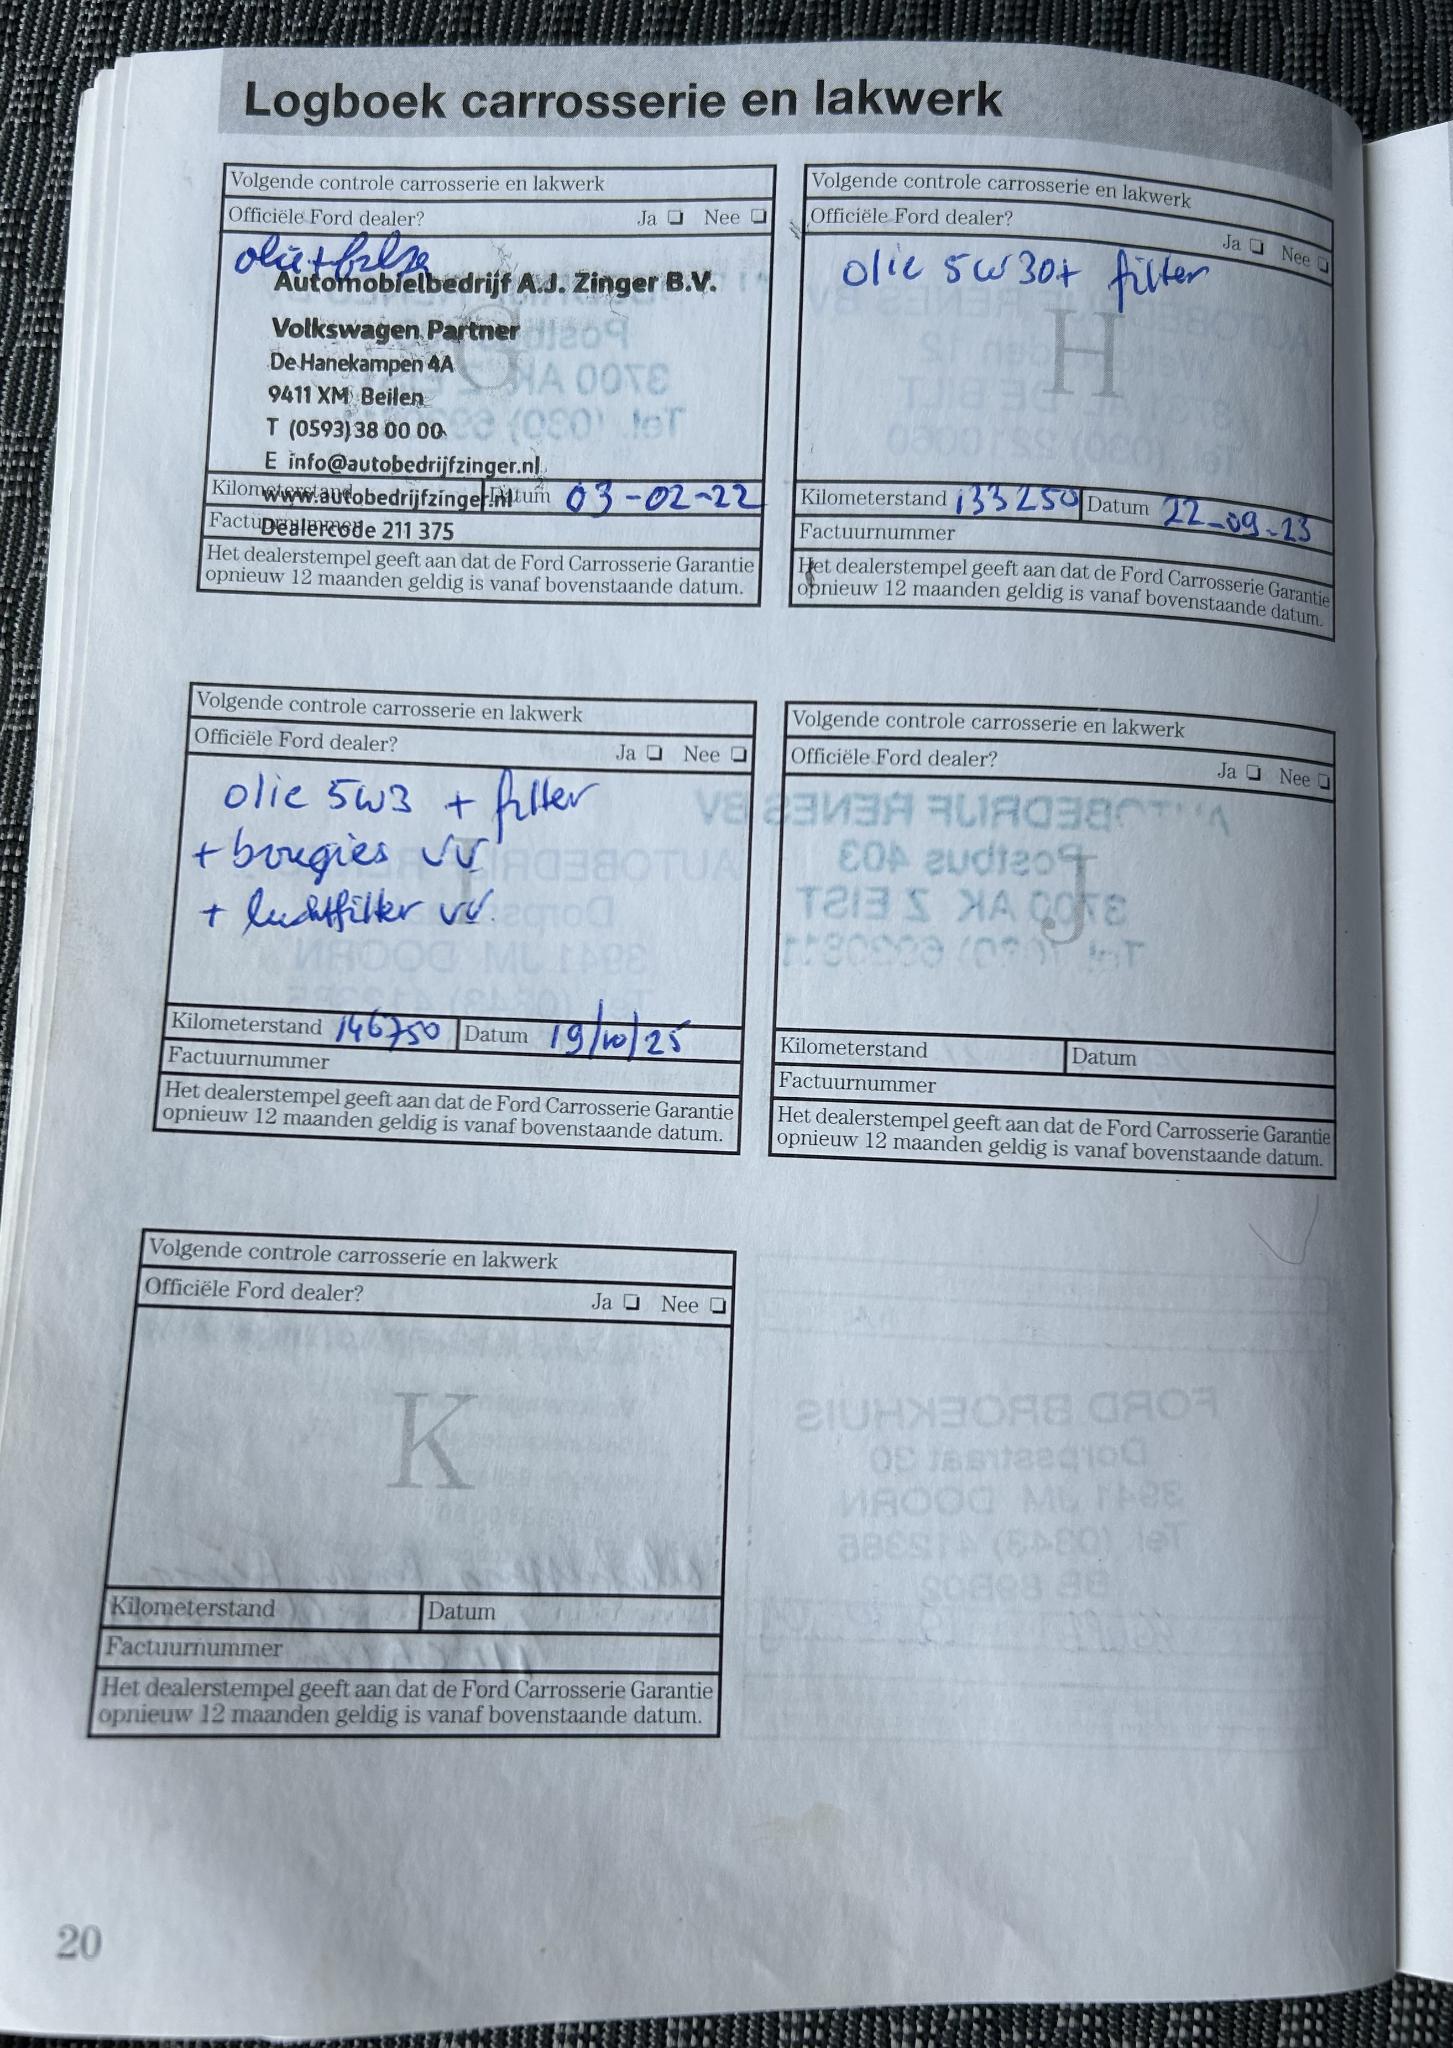 Logboek carrosserie en lakwerk
Volgende controle carrosserie en lakwerk
Officiële Ford dealer? Ja Nee
Automobielbedrijf A.J. Zinger B.V.
Volkswagen Partner
De Hanekampen 4A
9411 XM Beilen
T (0593) 38 00 00
E info@autobedrijfzinger.nl
www.autobedrijfzinger.nl
Dealercode 211 375
G
Kilometerstand Datum 03-02-22
Factuurnummer
Het dealerstempel geeft aan dat de Ford Carrosserie Garantie
opnieuw 12 maanden geldig is vanaf bovenstaande datum.
Volgende controle carrosserie en lakwerk
Officiële Ford dealer? Ja Nee
olie 5w30+ filter
H
Kilometerstand 133250 Datum 22-09-23
Factuurnummer
Het dealerstempel geeft aan dat de Ford Carrosserie Garantie
opnieuw 12 maanden geldig is vanaf bovenstaande datum.
Volgende controle carrosserie en lakwerk
Officiële Ford dealer? Ja Nee
olie 5w3 + filter
+ bougies vv
+ luchtfilter vv.
I
Kilometerstand 146750 Datum 19/10/25
Factuurnummer
Het dealerstempel geeft aan dat de Ford Carrosserie Garantie
opnieuw 12 maanden geldig is vanaf bovenstaande datum.
Volgende controle carrosserie en lakwerk
Officiële Ford dealer? Ja Nee
J
Kilometerstand Datum
Factuurnummer
Het dealerstempel geeft aan dat de Ford Carrosserie Garantie
opnieuw 12 maanden geldig is vanaf bovenstaande datum.
Volgende controle carrosserie en lakwerk
Officiële Ford dealer? Ja Nee
K
Kilometerstand Datum
Factuurnummer
Het dealerstempel geeft aan dat de Ford Carrosserie Garantie
opnieuw 12 maanden geldig is vanaf bovenstaande datum.
20